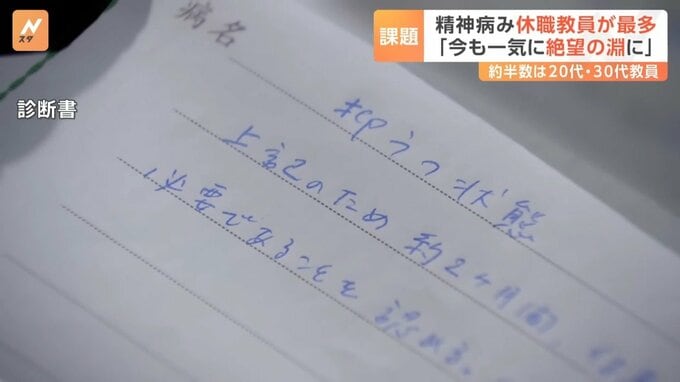 Nスタ
課題
精神病み休職教員が最多
「今も一気に絶望の淵に」
約半数は20代・30代教員
診断書
病名
抑うつ状態
上記のため 約2ケ月間、
必要であることを 認める。